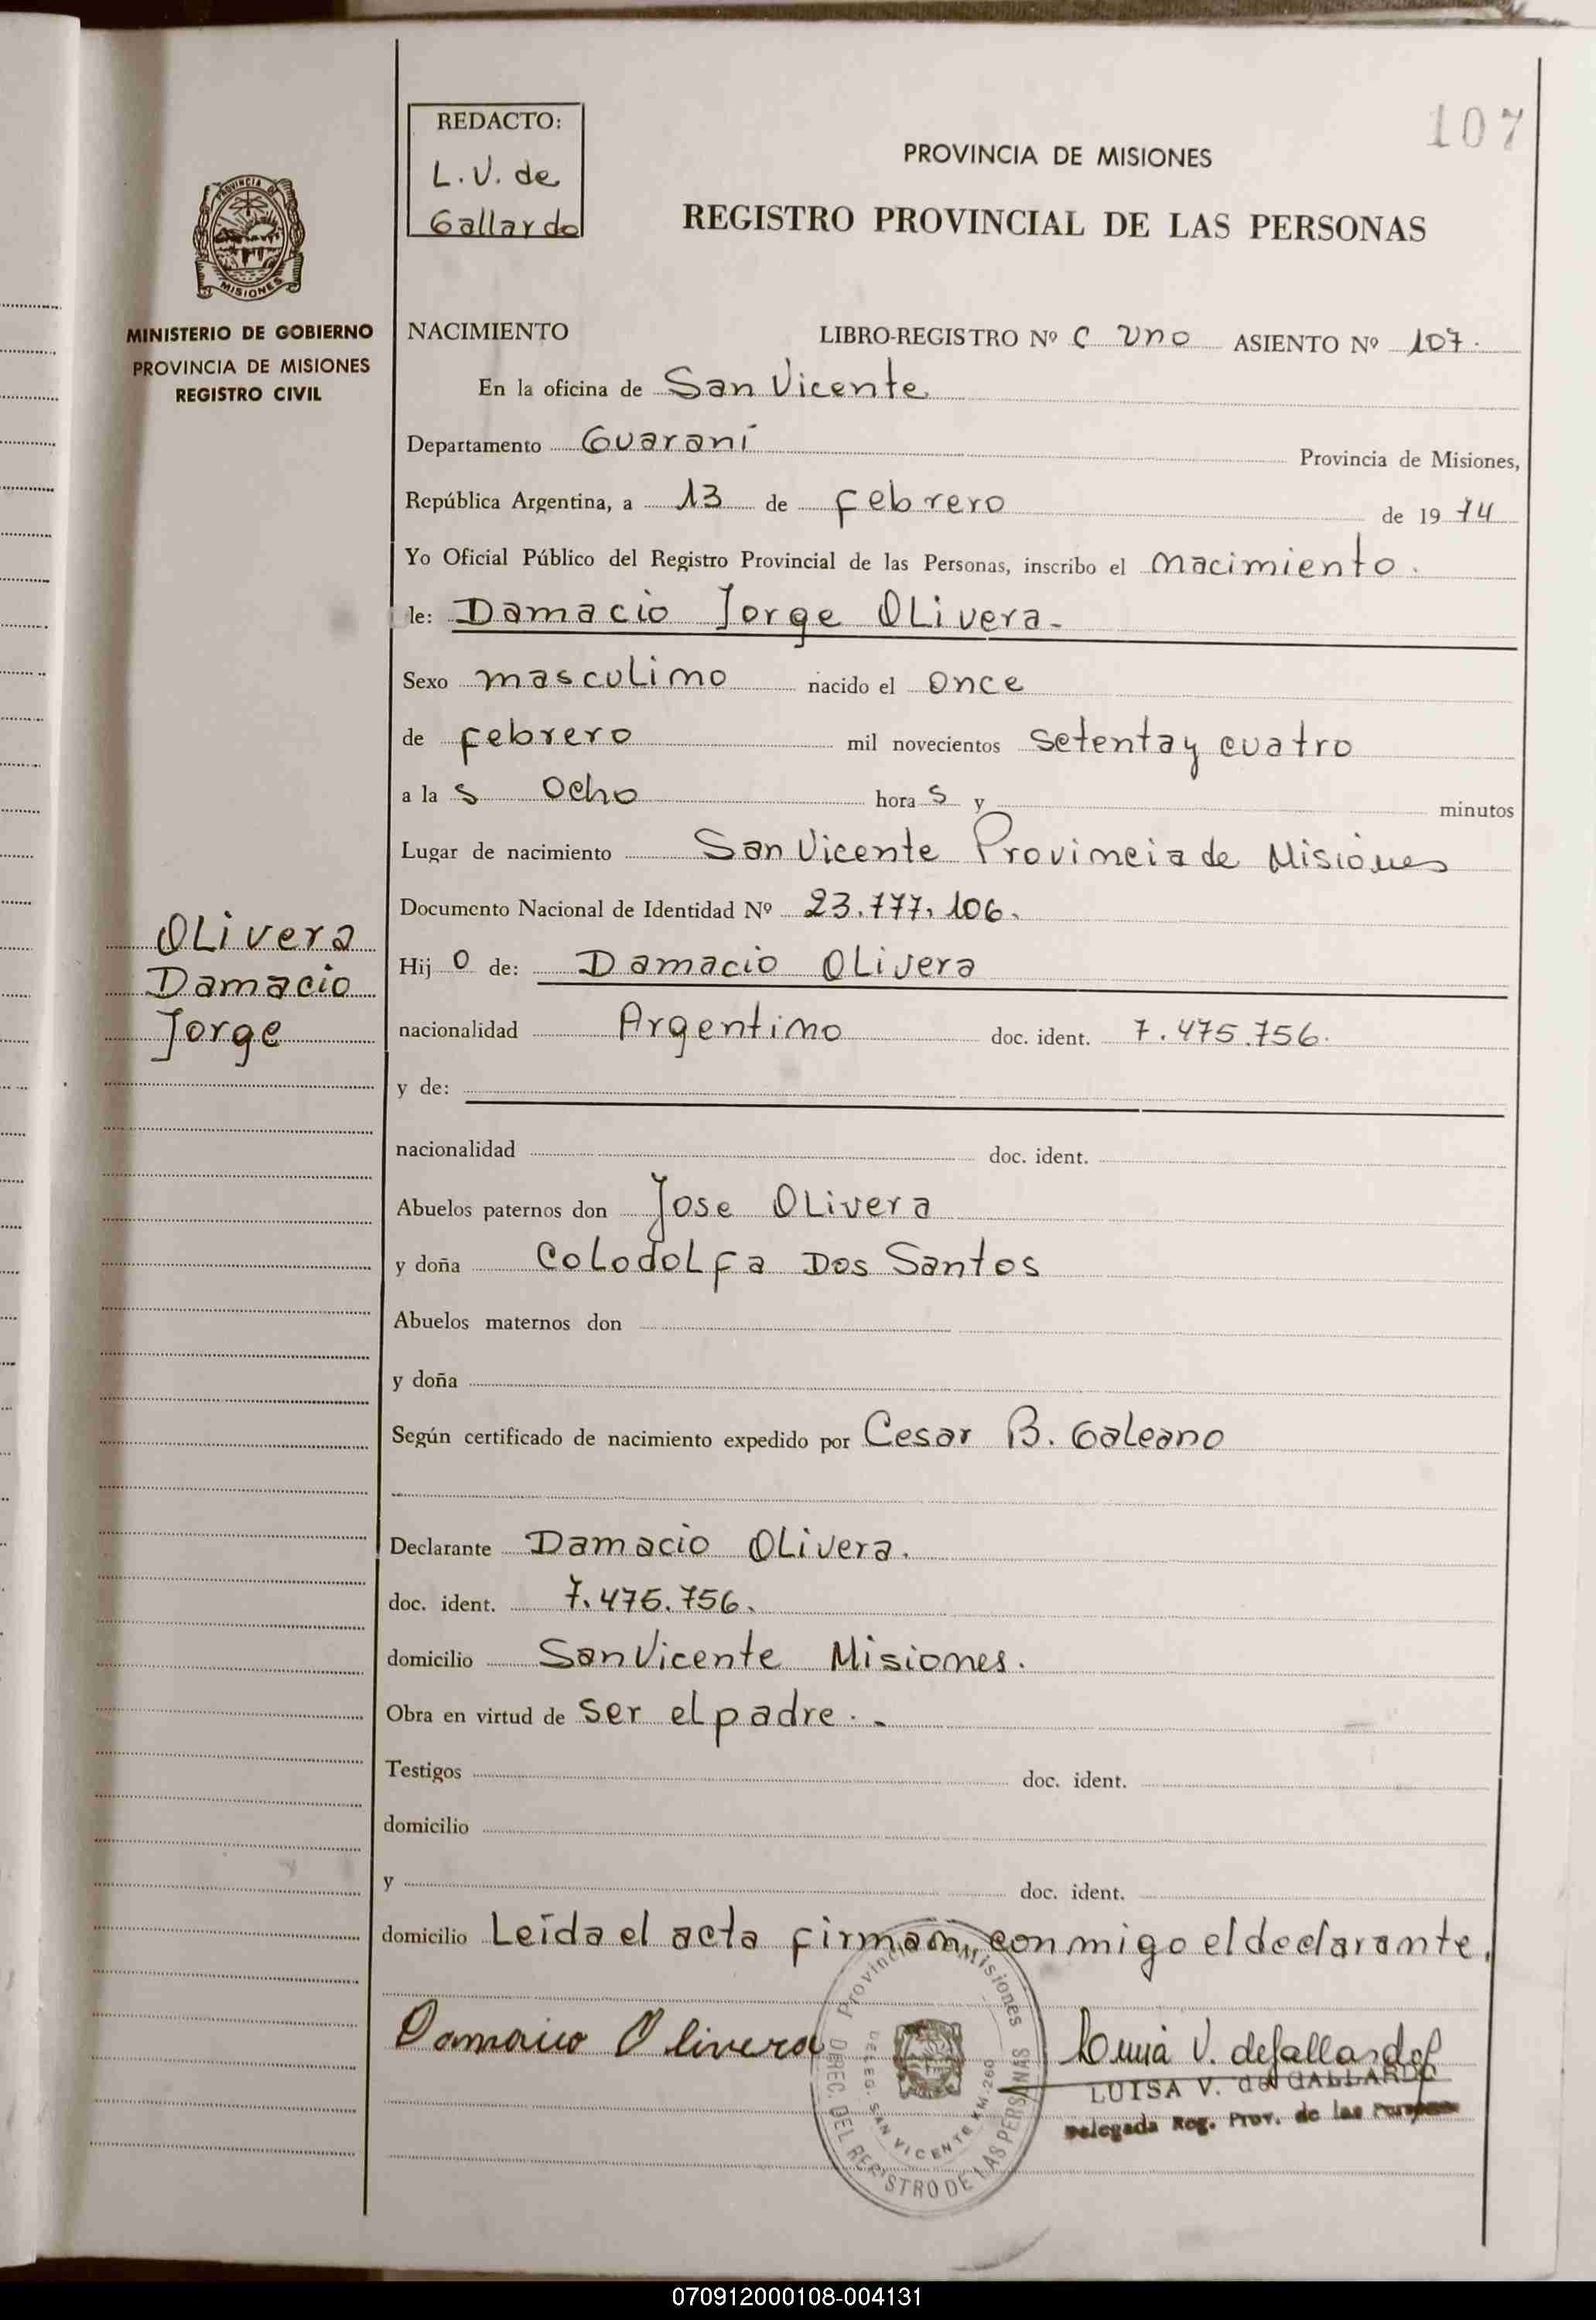 107
REDACTO:
L. V. de
Gallardo
PROVINCIA DE MISIONES
REGISTRO PROVINCIAL DE LAS PERSONAS
PROVINCIA DE
MISIONES
MINISTERIO DE GOBIERNO
PROVINCIA DE MISIONES
REGISTRO CIVIL
NACIMIENTO LIBRO-REGISTRO Nº C Uno ASIENTO Nº 107.
En la oficina de San Vicente
Departamento Guaraní Provincia de Misiones,
República Argentina, a 13 de febrero de 1974
Yo Oficial Público del Registro Provincial de las Personas, inscribo el nacimiento.
le: Damacio Jorge Olivera-
Sexo masculino nacido el once
de febrero mil novecientos setenta y cuatro
a la s ocho hora s y minutos
Lugar de nacimiento San Vicente Provincia de Misiones
Documento Nacional de Identidad Nº 23.777.106.
Olivera
Damacio
Jorge
Hij o de: Damacio Olivera
nacionalidad Argentino doc. ident. 7.475.756.
y de:
nacionalidad doc. ident.
Abuelos paternos don Jose Olivera
y doña Colodolfa Dos Santos
Abuelos maternos don
y doña
Según certificado de nacimiento expedido por Cesar B. Galeano
Declarante Damacio Olivera.
doc. ident. 7.475.756.
domicilio San Vicente Misiones.
Obra en virtud de ser el padre.-
Testigos doc. ident.
domicilio
y doc. ident.
domicilio Leída el acta firman conmigo el declarante.
Damacio Olivera
Luisa V. de Gallardo
LUISA V. de GALLARDO
Delegada Reg. Prov. de las Personas
Provincia Misiones
DIREC. DEL REGISTRO DE LAS PERSONAS
DELEG. SAN VICENTE KM-260
070912000108-004131